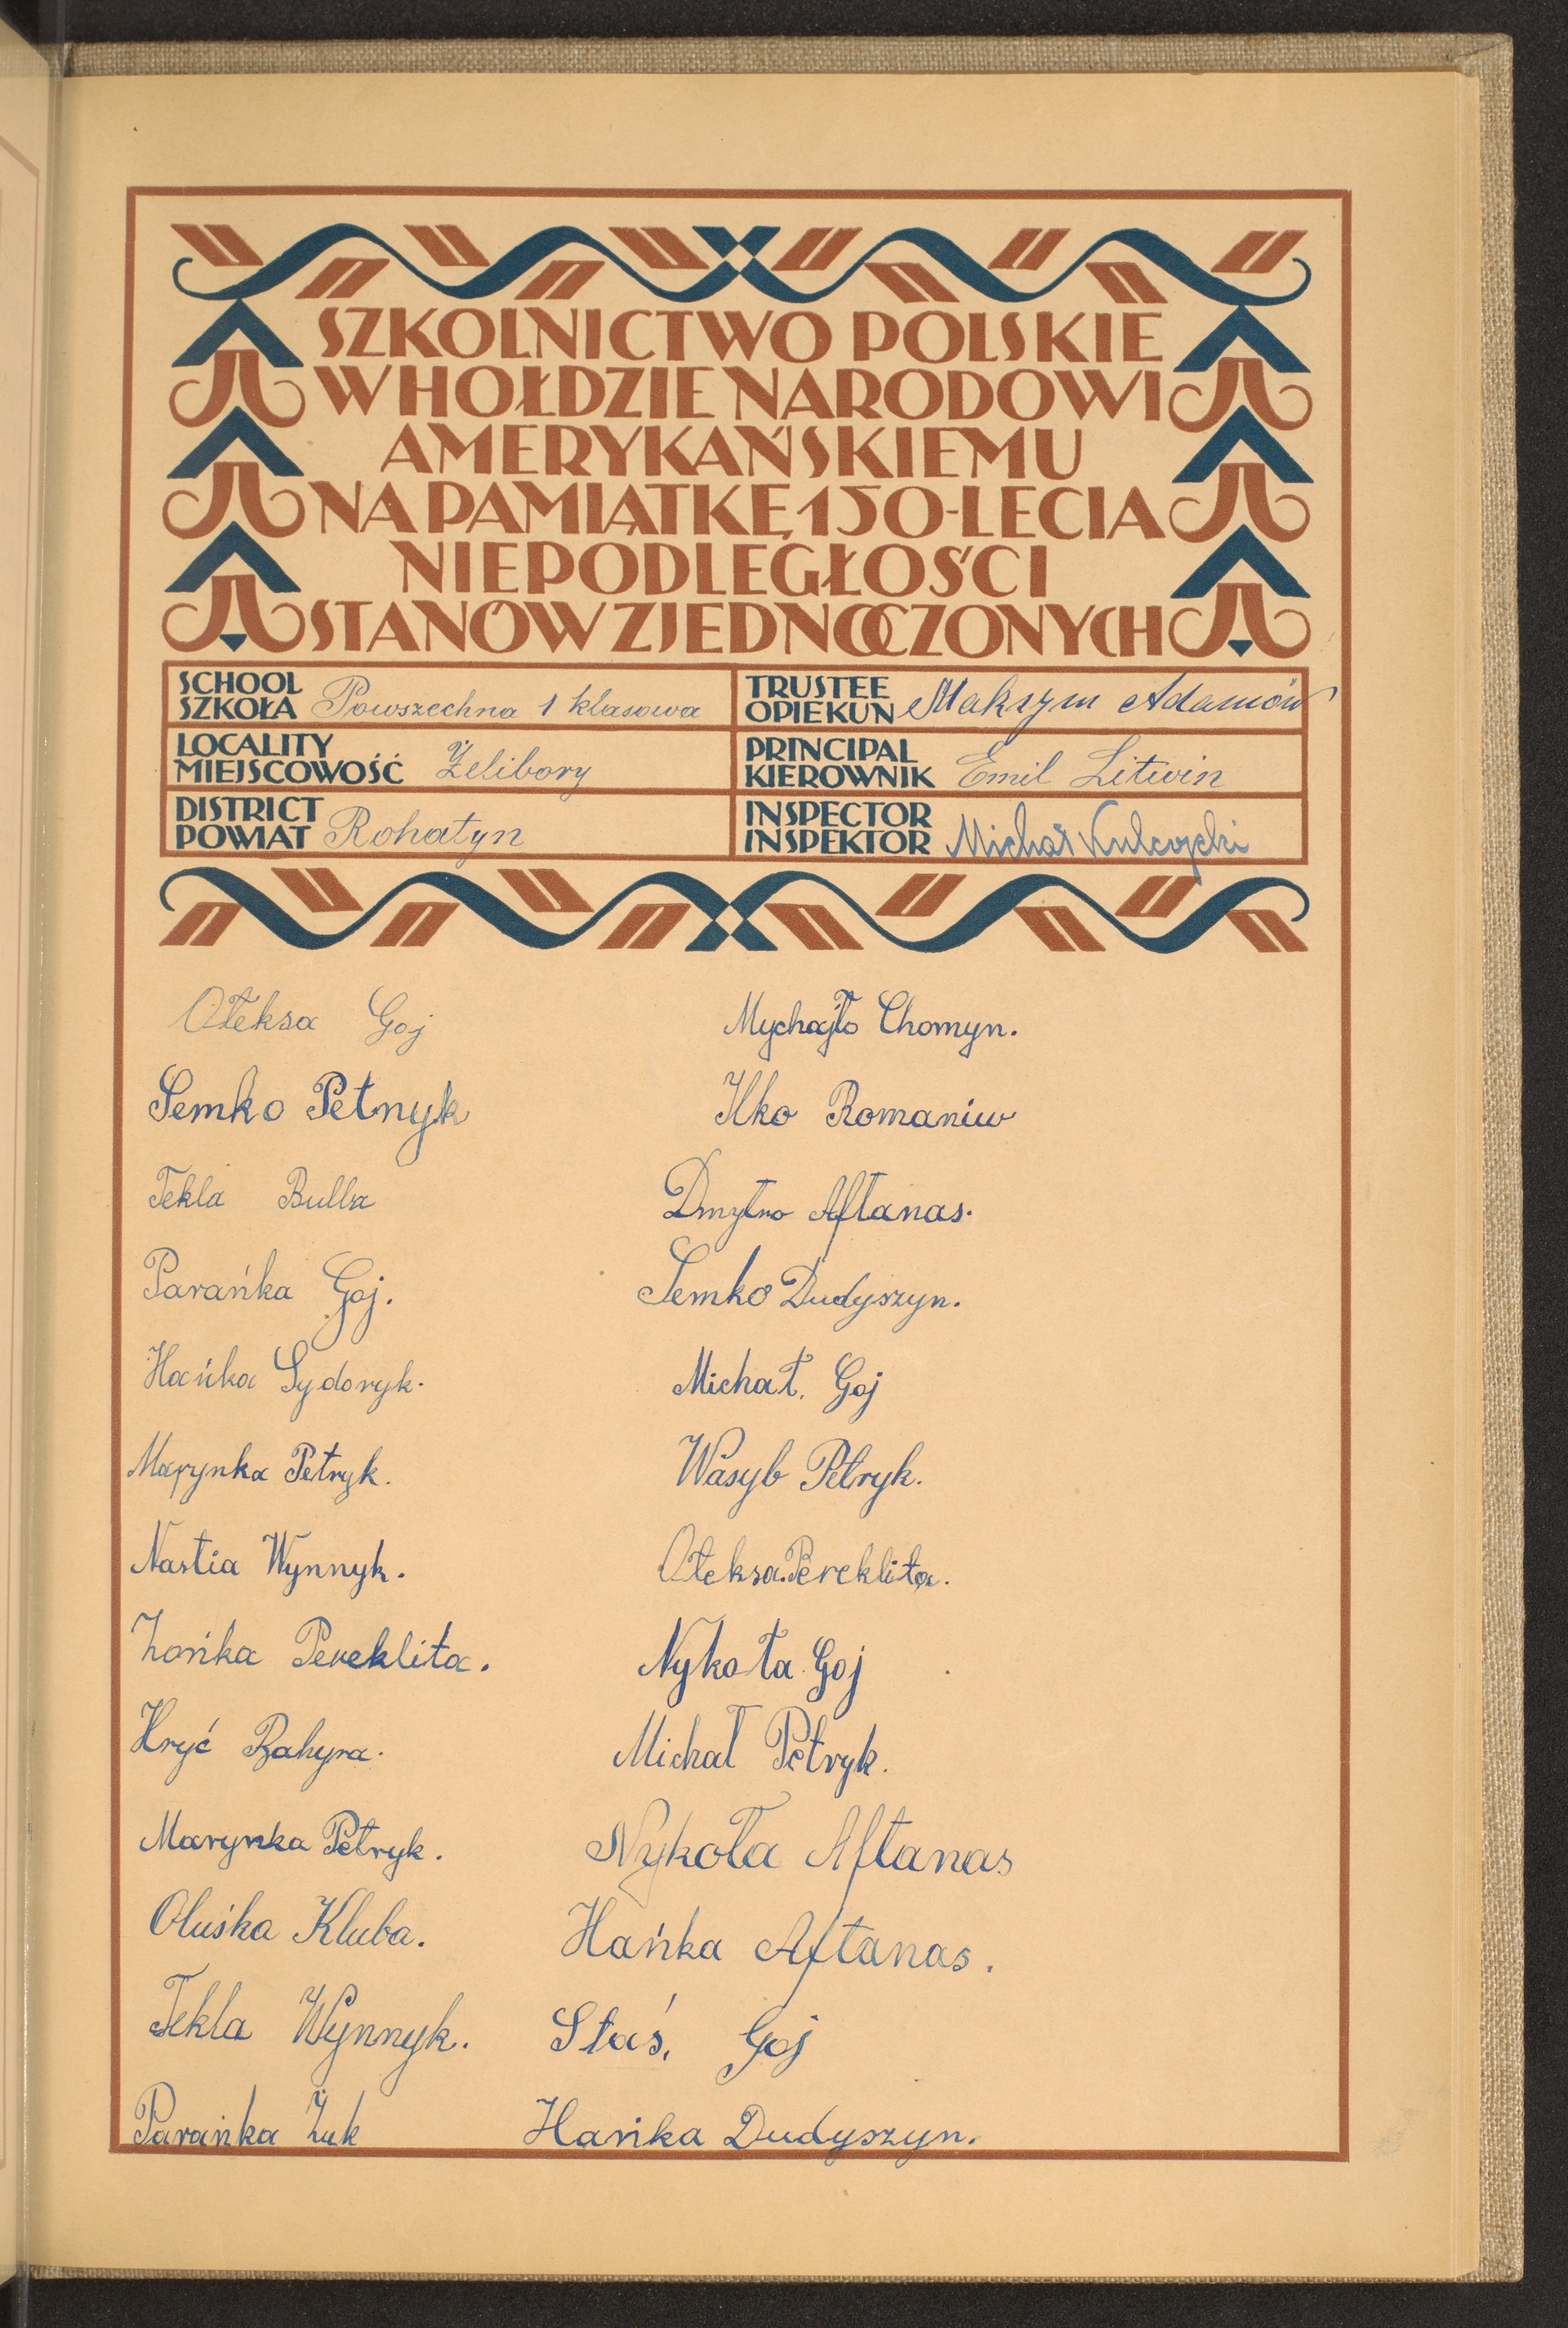 SZKOLNICTWO POLSKIE
W HOŁDZIE NARODOWI
AMERYKAŃSKIEMU
NA PAMIĄTKĘ 150-LECIA
NIEPODLEGŁOŚCI
STANÓW ZJEDNOCZONYCH
SCHOOL
SZKOŁA Powszechna 1 klasowa
TRUSTEE
OPIEKUN Maksym Adamów
LOCALITY
MIEJSCOWOŚĆ Żelibory
PRINCIPAL
KIEROWNIK Emil Litwin
DISTRICT
POWIAT Rohatyn
INSPECTOR
INSPEKTOR Michał
Ołeksa Goj
Semko Petnyk
Tekla Bulba
Parańka Goj.
Hańka Sydoryk.
Marynka Petryk.
Nastia Wynnyk.
Zońka Pereklita.
Hryć Bahyra.
Marynka Petryk.
Oluśka Kluba.
Tekla Wynnyk.
Parańka Żuk
Mychajło Chomyn.
Ilko Romaniw
Dmytro Aftanas.
Semko Dudyszyn.
Michał. Goj
Wasyb Petryk.
Ołeksa. Pereklita.
Nykoła Goj
Michał Petryk.
Nykoła Aftanas
Hańka Aftanas.
Staś. Goj
Hańka Dudyszyn.